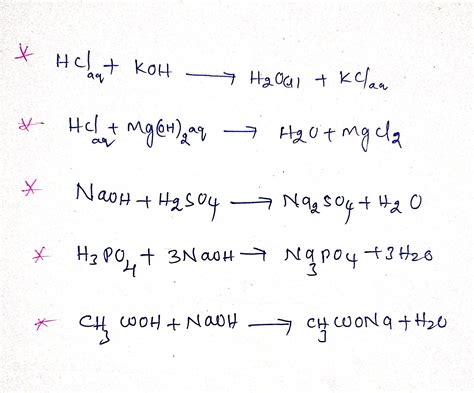 * HCl aq + KOH → H2O(l) + KCl aq
* HCl aq + Mg(OH)2 aq → H2O + MgCl2
* NaOH + H2SO4 → Na2SO4 + H2O
* H3PO4 + 3NaOH → Na3PO4 + 3H2O
* CH3COOH + NaOH → CH3COONa + H2O